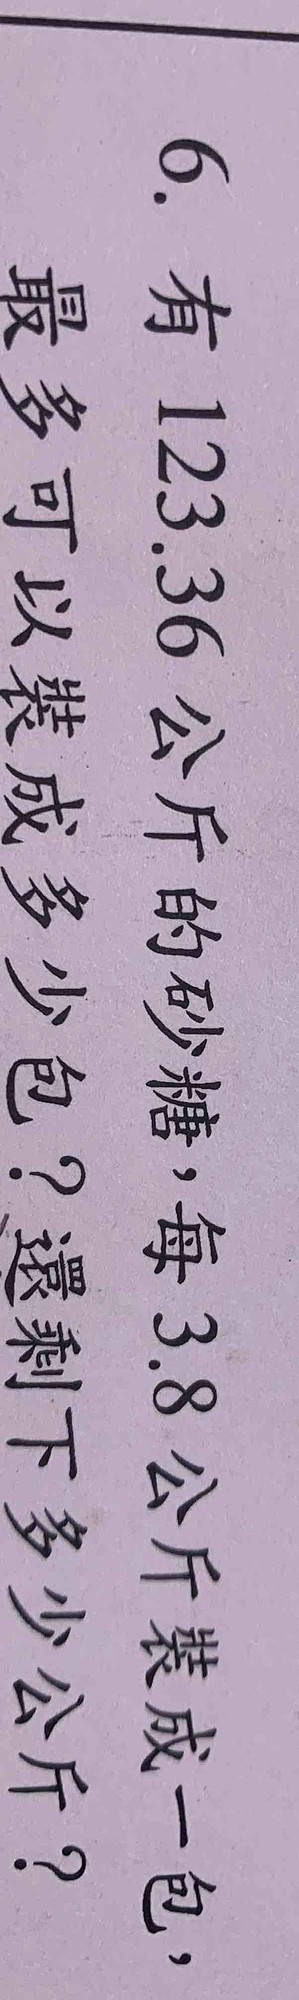 6. 有 123.36 公斤的砂糖，每 3.8 公斤裝成一包，
最多可以裝成多少包？還剩下多少公斤？